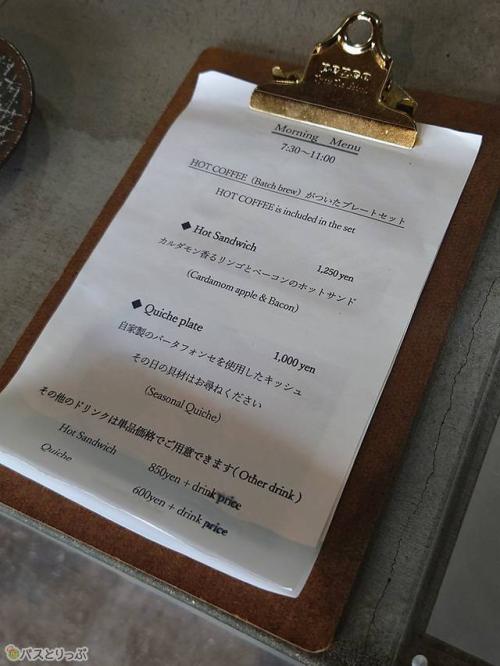 Morning Menu
7:30〜11:00
HOT COFFEE（Batch brew）がついたプレートセット
HOT COFFEE is included in the set
◆ Hot Sandwich 1,250 yen
カルダモン香るリンゴとベーコンのホットサンド
(Cardamom apple & Bacon)
◆ Quiche plate 1,000 yen
自家製のパータフォンセを使用したキッシュ
その日の具材はお尋ねください
(Seasonal Quiche)
その他のドリンクは単品価格でご用意できます( Other drink )
Hot Sandwich 850yen + drink price
Quiche 600yen + drink price
バスとりっぷ